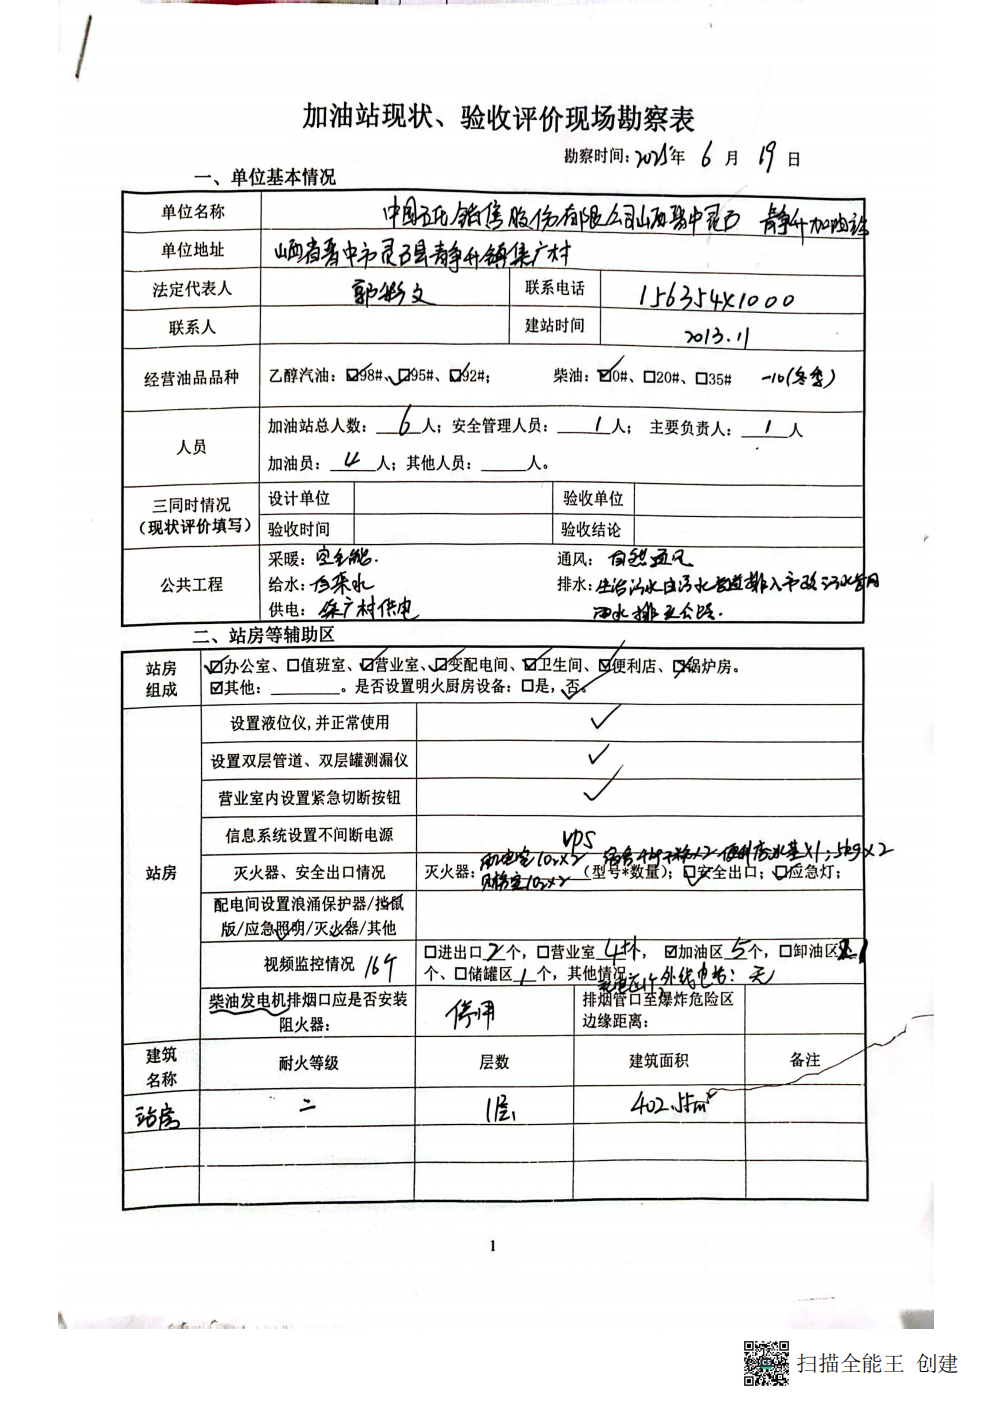 加油站现状、验收评价现场勘察表
勘察时间：2025年 6 月 19 日
一、单位基本情况
单位名称 中国石化销售股份有限公司山西晋中灵石 静升加油站
单位地址 山西省晋中市灵石县静升镇集广村
法定代表人 郭彬文 联系电话 156354X1000
联系人 建站时间 2013.11
经营油品品种 乙醇汽油：☑98#、☑95#、☑92#； 柴油：☑0#、□20#、□35# -10(冬季)
人员 加油站总人数： 6 人；安全管理人员： 1 人； 主要负责人： 1 人
加油员： 4 人；其他人员：______人。
三同时情况
（现状评价填写）
设计单位 验收单位
验收时间 验收结论
公共工程
采暖：空气能. 通风：自然通风
给水：自来水 排水：生活污水由污水管道排入市政污水管网
供电：集广村供电 雨水排至公路.
二、站房等辅助区
站房组成 ☑办公室、□值班室、☑营业室、☑变配电间、☑卫生间、☑便利店、□锅炉房。
☑其他：________。是否设置明火厨房设备：□是，否。
站房
设置液位仪,并正常使用 ✓
设置双层管道、双层罐测漏仪 ✓
营业室内设置紧急切断按钮 ✓
信息系统设置不间断电源 UPS
灭火器、安全出口情况 灭火器：配电室 ×2 ×2 便利店水基×1；5kg×2
×2 （型号*数量）；☑安全出口；☑应急灯；
配电间设置浪涌保护器/挡鼠版/应急照明/灭火器/其他
视频监控情况 16个 □进出口 2 个，□营业室 4 个，☑加油区 5 个，□卸油区 1
个、□储罐区 1 个，其他情况 外线电话：无
柴油发电机排烟口应是否安装阻火器： 停用 排烟管口至爆炸危险区边缘距离：
建筑名称 耐火等级 层数 建筑面积 备注
站房 二 1层 402.55m²
1
扫描全能王 创建